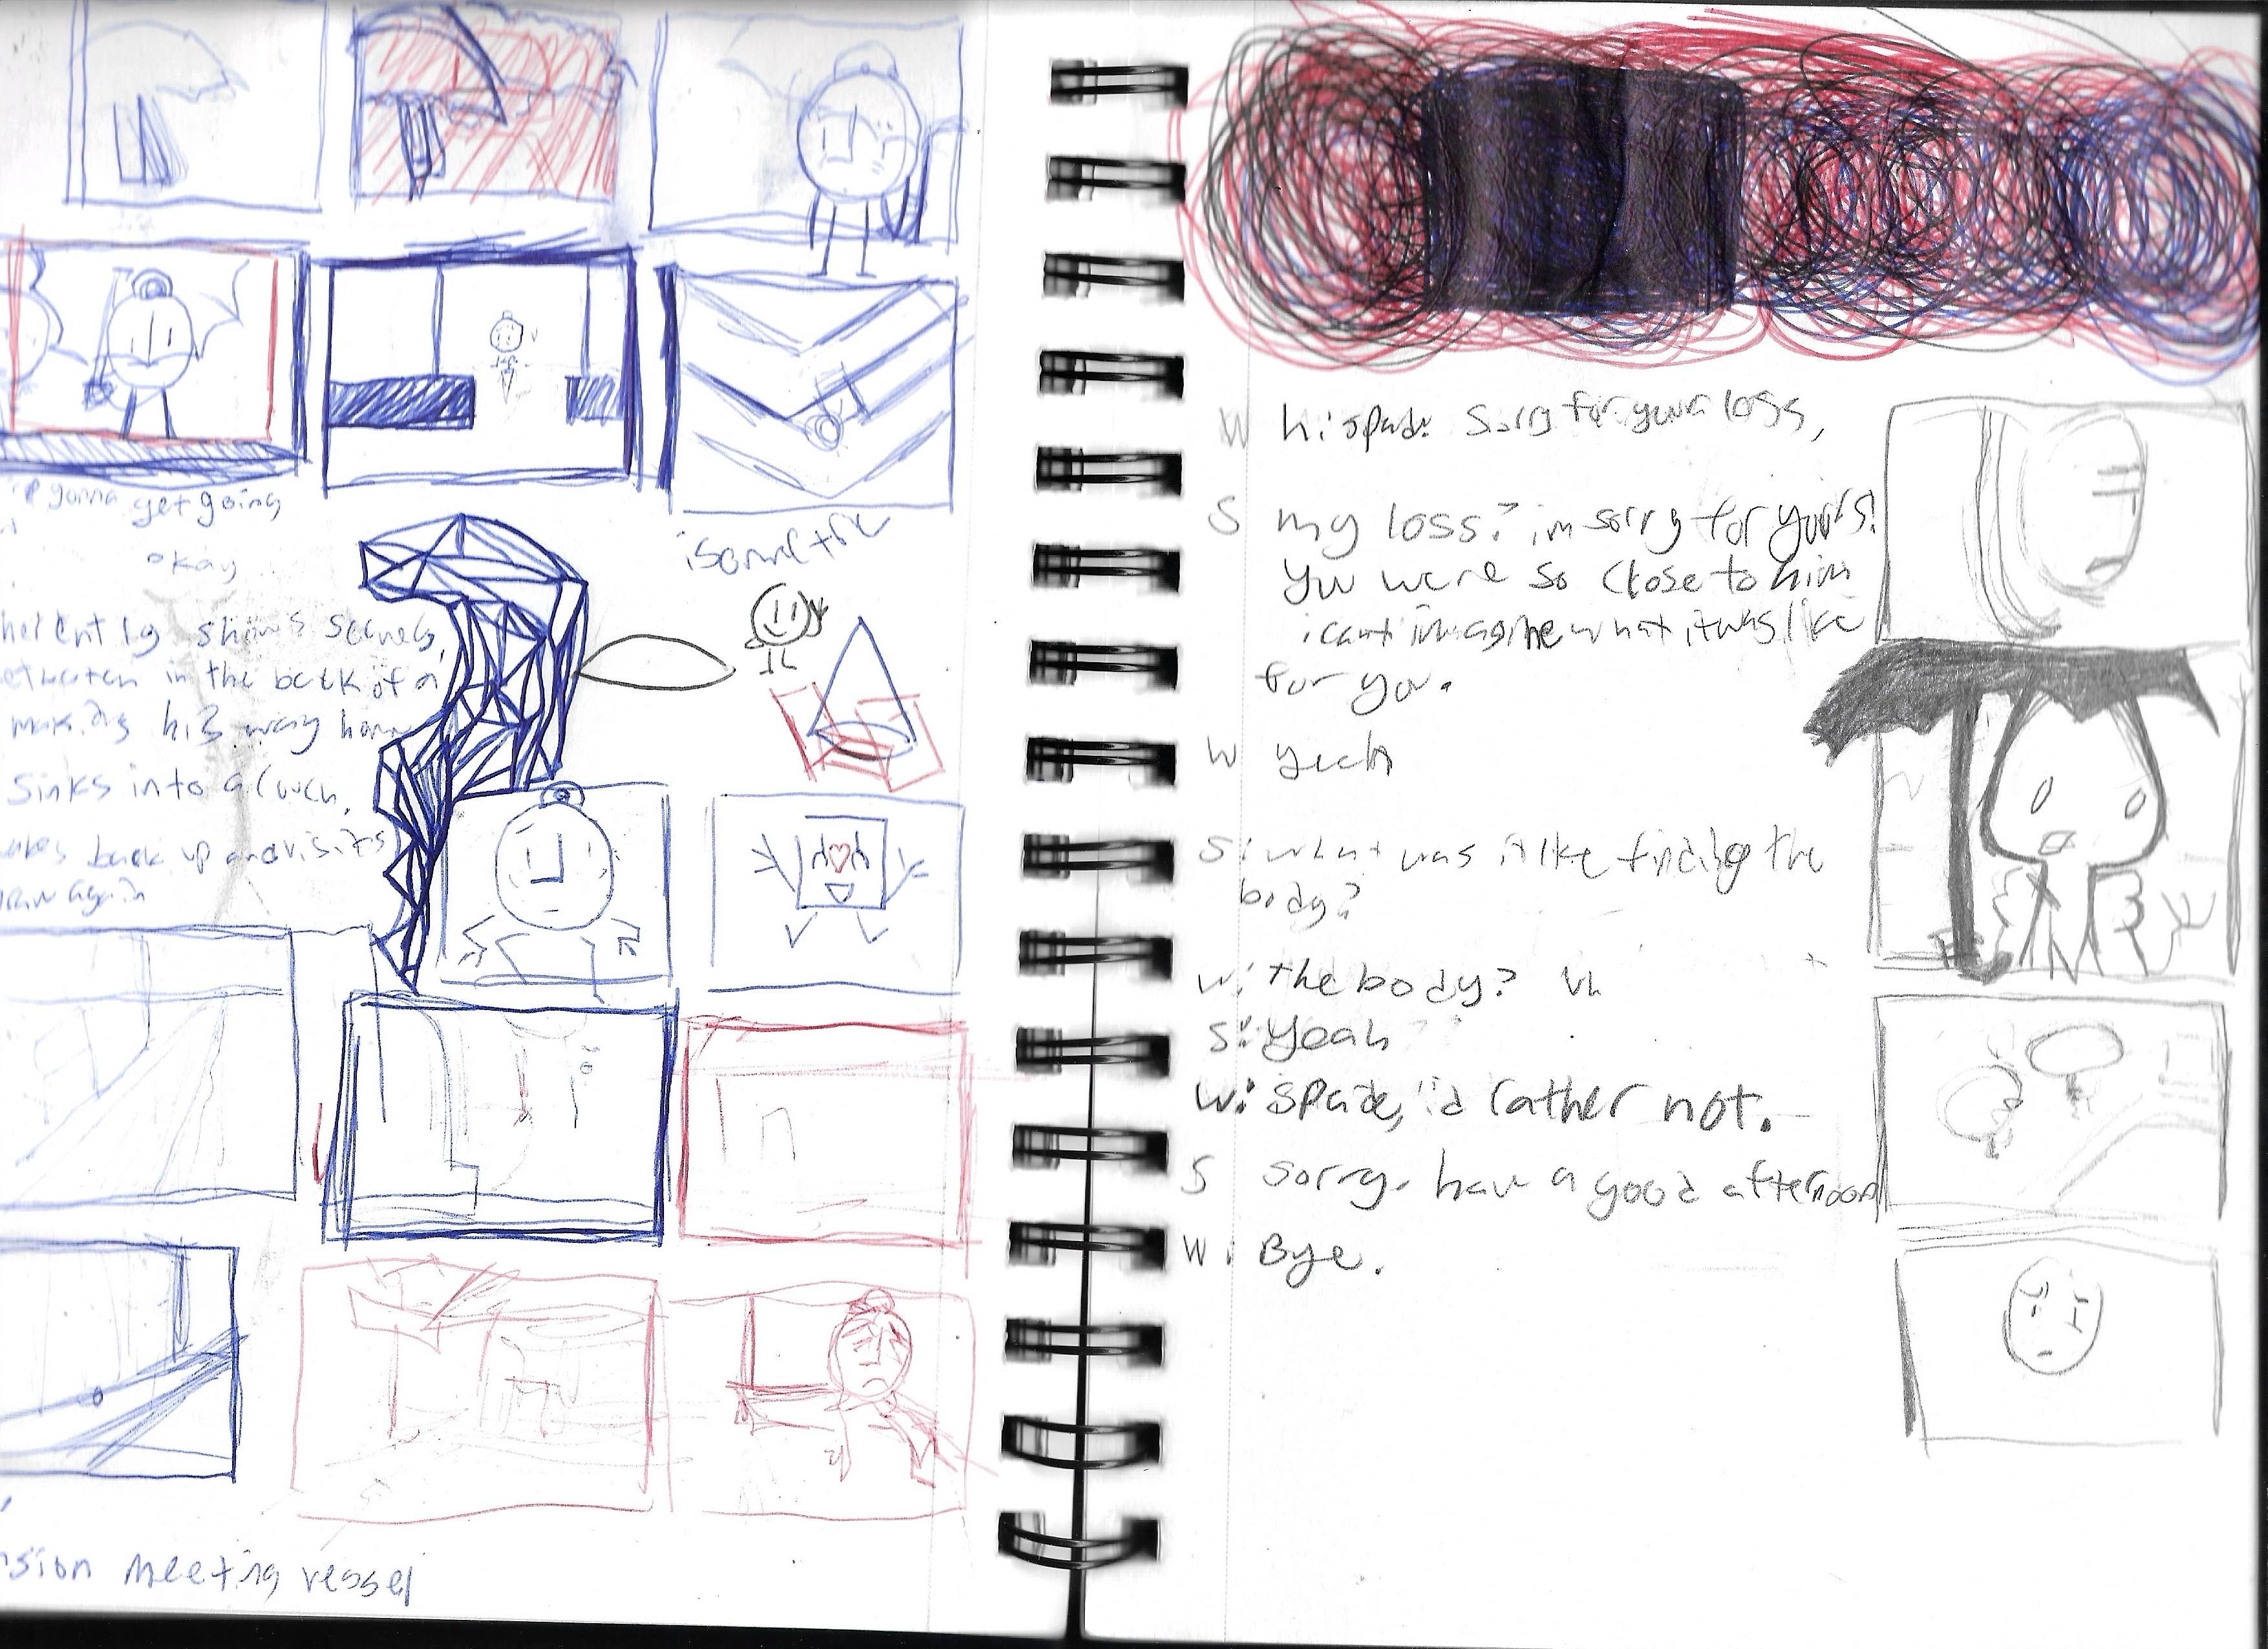 gonna get going
okay
isometric
shows scenes,
in the back of a
making his way home
sinks into a couch,
back up and visits
again
meeting vessel
W hi spade sorry for your loss,
S my loss? im sorry for yours!
you were so close to him
i cant imagine what it was like
for you.
W yeah
S: what was it like finding the
body?
W: the body? Uh
S: Yeah
W: Spade, i'd rather not.
S sorry. have a good afternoon
W: Bye.